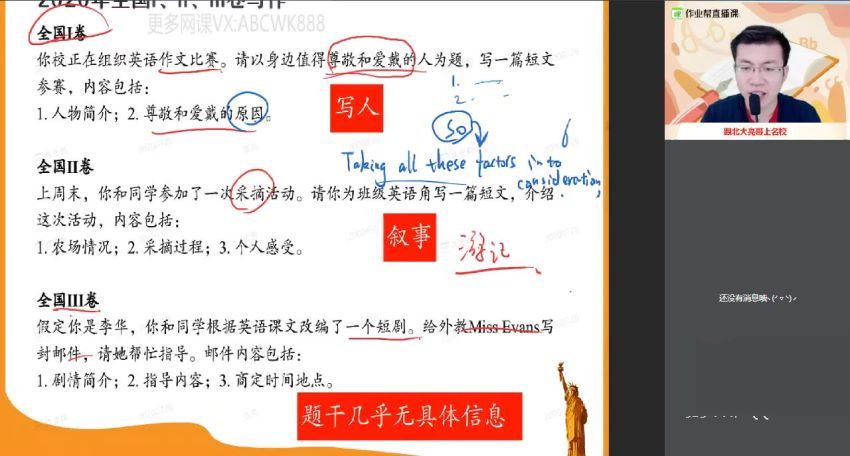 2020年全国I、II、III卷写作
更多网课VX:ABCWK888
全国I卷
你校正在组织英语作文比赛。请以身边值得尊敬和爱戴的人为题，写一篇短文
参赛，内容包括：
1. 人物简介；2. 尊敬和爱戴的原因。
写人
1.
2.
so
Taking all these factors into
consideration,
全国II卷
上周末，你和同学参加了一次采摘活动。请你为班级英语角写一篇短文，介绍
这次活动，内容包括：
1. 农场情况；2. 采摘过程；3. 个人感受。
叙事
游记
全国III卷
假定你是李华，你和同学根据英语课文改编了一个短剧。给外教Miss Evans写
封邮件，请她帮忙指导。邮件内容包括：
1. 剧情简介；2. 指导内容；3. 商定时间地点。
题干几乎无具体信息
作业帮直播课
跟北大亮哥上名校
还没有消息哦